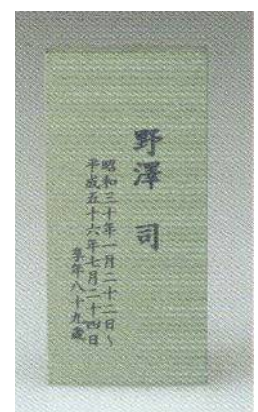 野澤 司
昭和三十年一月二十二日～
平成五十六年七月二十四日
享年八十九歳